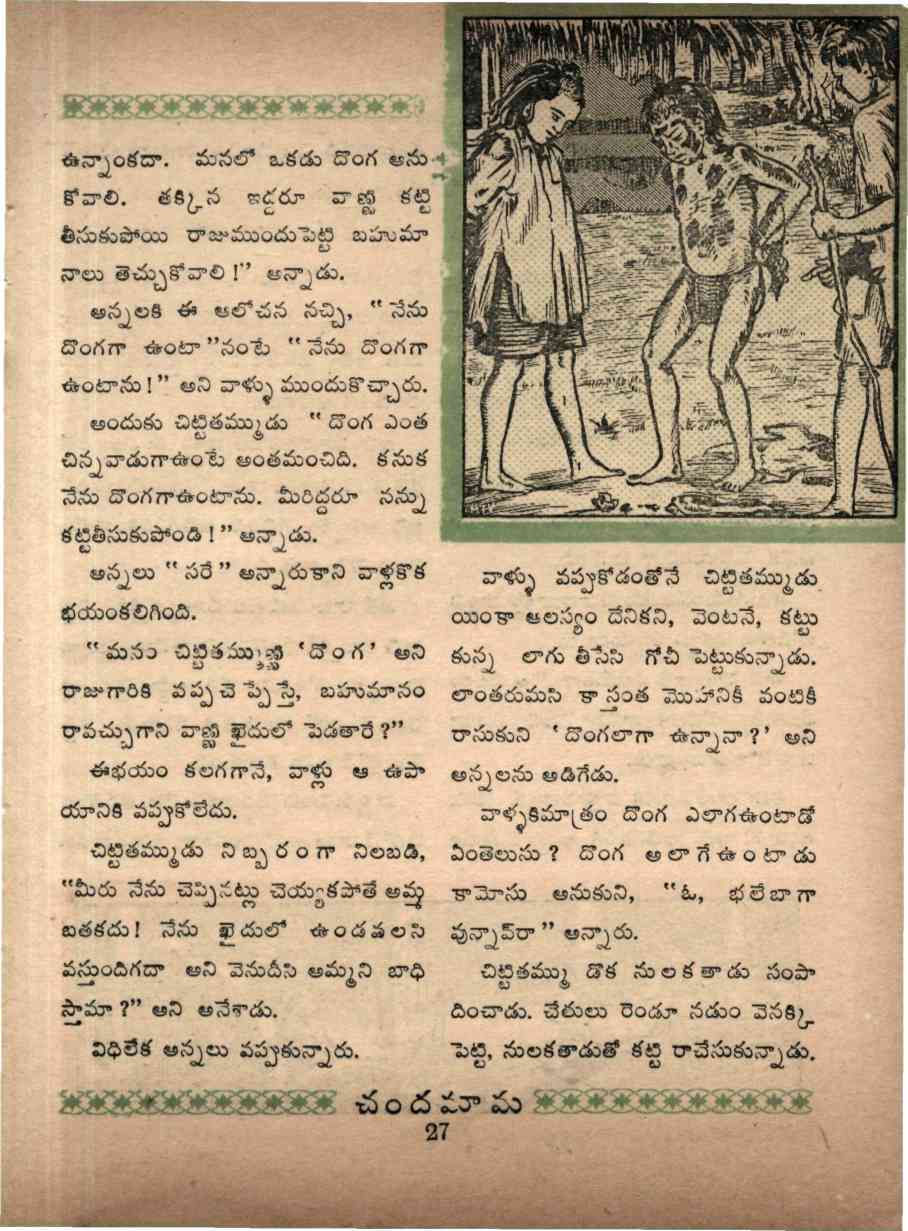 ఉన్నాంకదా. మనలో ఒకడు దొంగ అను
కోవాలి. తక్కిన ఇద్దరూ వాణ్ణి కట్టి
తీసుకుపోయి రాజుముందుపెట్టి బహుమా
నాలు తెచ్చుకోవాలి!” అన్నాడు.
అన్నలకి ఈ ఆలోచన నచ్చి, “నేను
దొంగగా ఉంటా”నంటే “నేను దొంగగా
ఉంటాను!” అని వాళ్ళు ముందుకొచ్చారు.
అందుకు చిట్టితమ్ముడు “దొంగ ఎంత
చిన్నవాడుగాఉంటే అంతమంచిది. కనుక
నేను దొంగగాఉంటాను. మీరిద్దరూ నన్ను
కట్టితీసుకుపోండి!” అన్నాడు.
అన్నలు “సరే” అన్నారుకాని వాళ్లకొక
భయంకలిగింది.
“మనం చిట్టితమ్ముణ్ణి ‘దొంగ’ అని
రాజుగారికి వప్పచెప్పేస్తే, బహుమానం
రావచ్చుగాని వాణ్ణి ఖైదులో పెడతారే?”
ఈభయం కలగగానే, వాళ్లు ఆ ఉపా
యానికి వప్పుకోలేదు.
చిట్టితమ్ముడు నిబ్బరంగా నిలబడి,
“మీరు నేను చెప్పినట్లు చెయ్యకపోతే అమ్మ
బతకదు! నేను ఖైదులో ఉండవలసి
వస్తుందిగదా అని వెనుదీసి అమ్మని బాధి
స్తామా?” అని అనేశాడు.
విధిలేక అన్నలు వప్పుకున్నారు.
వాళ్ళు వప్పుకోడంతోనే చిట్టితమ్ముడు
యింకా ఆలస్యం దేనికని, వెంటనే, కట్టు
కున్న లాగు తీసేసి గోచీ పెట్టుకున్నాడు.
లాంతరుమసి కాస్తంత మొహానికీ వంటికీ
రాసుకుని ‘దొంగలాగా ఉన్నానా?’ అని
అన్నలను అడిగేడు.
వాళ్ళకిమాత్రం దొంగ ఎలాగఉంటాడో
ఏంతెలుసు? దొంగ అలాగేఉంటాడు
కామోసు అనుకుని, “ఓ, భలేబాగా
వున్నావ్‌రా” అన్నారు.
చిట్టితమ్ము డొక నులకతాడు సంపా
దించాడు. చేతులు రెండూ నడుం వెనక్కి
పెట్టి, నులకతాడుతో కట్టి రాచేసుకున్నాడు.
చందమామ
27